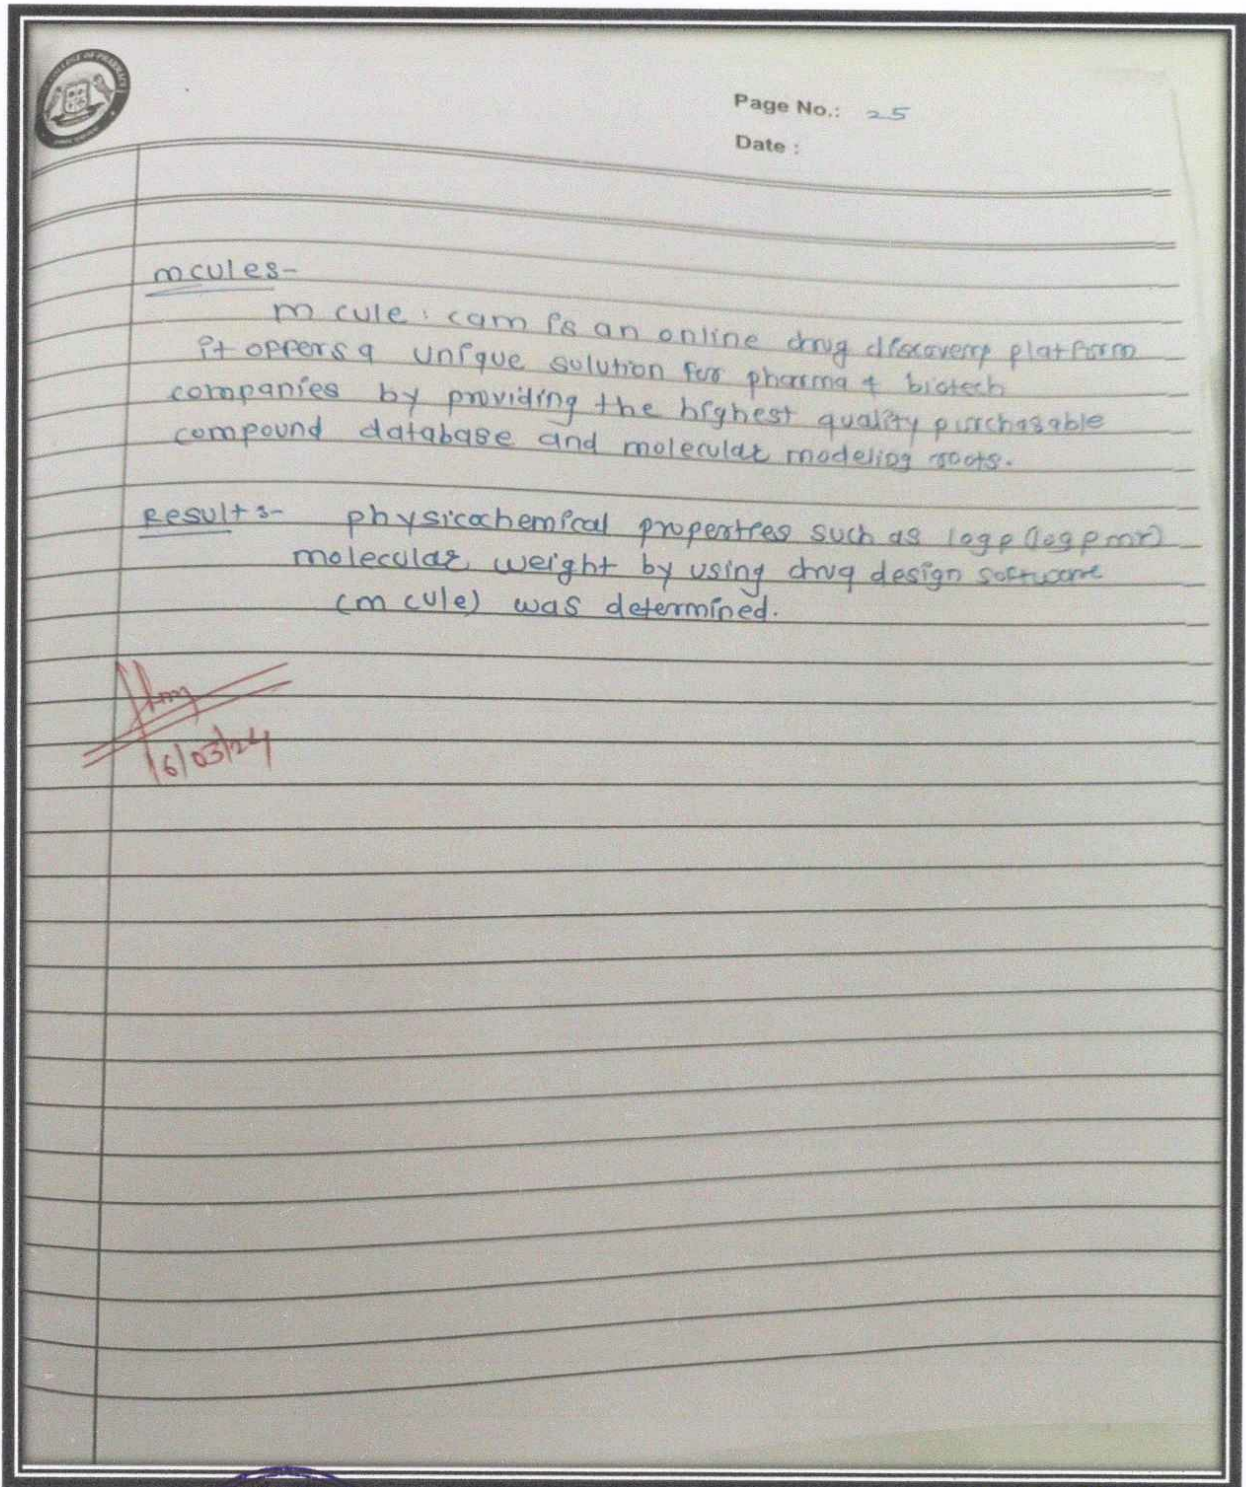 COLLEGE OF PHARMACY
Page No.: 25
Date :
mcules-
m cule . com is an online drug discovery platform
it oppers a unique solution for pharma & biotech
companies by providing the highest quality purchasable
compound database and molecular modeling
Result :- physicochemical properties such as logp (logp mr)
molecular weight by using drug design software
(m cule) was determined.
16/03/24